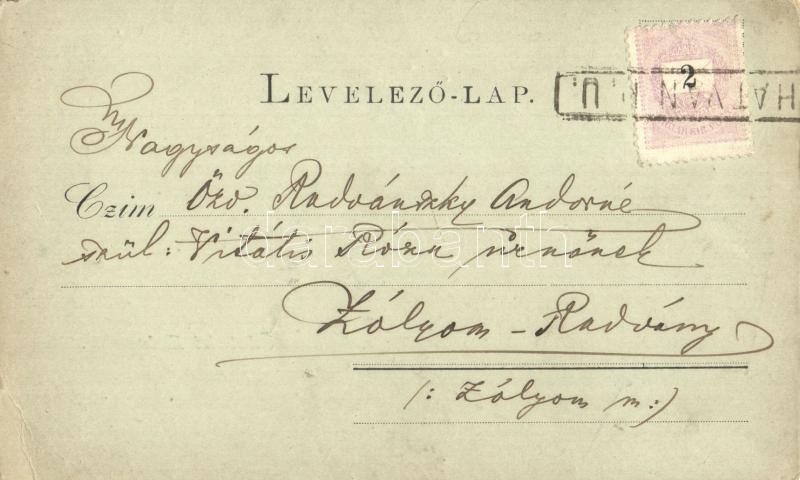 LEVELEZŐ-LAP.
2
HATVAN P.U.
Nagyságos
Czim Özv. Radvánszky Andorné
szül: Vitális Róza úrnőnek
Zólyom-Radvány
(: Zólyom m:)
darabanth